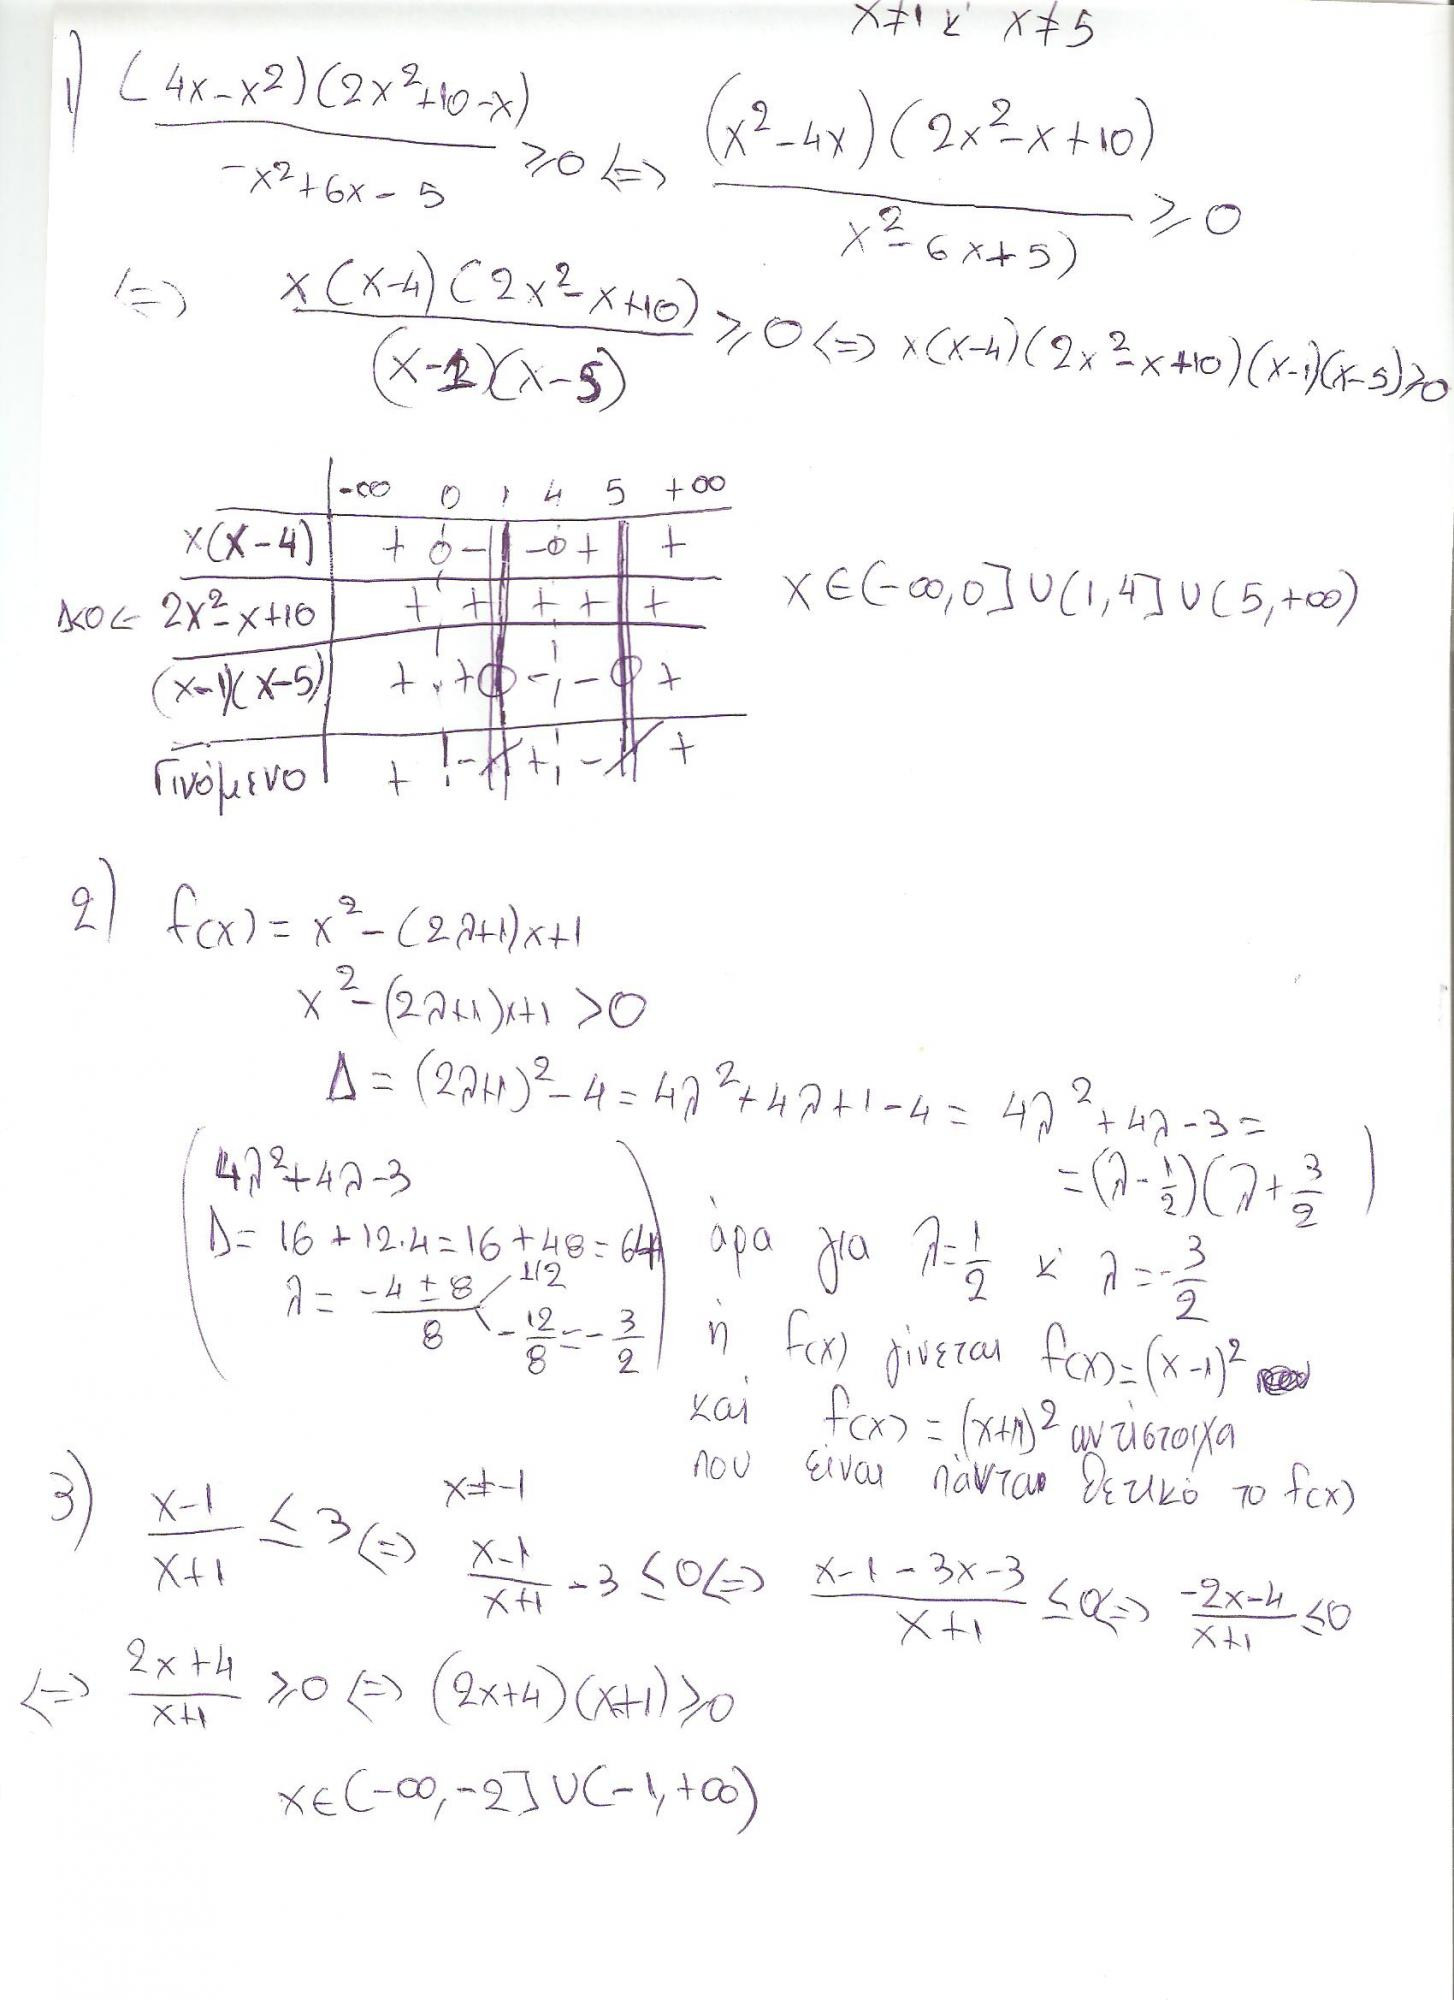 x≠1 κ' x≠5
1) (4x-x²)(2x²+10-x) / -x²+6x-5 ≥0 <=> (x²-4x)(2x²-x+10) / x²-6x+5) ≥0
<=> x(x-4)(2x²-x+10) / (x-1)(x-5) ≥0 <=> x(x-4)(2x²-x+10)(x-1)(x-5)≥0
-∞ 0 1 4 5 +∞
x(x-4) + 0 - -0+ +
Δ<0 <- 2x²-x+10 + + + + +
x∈(-∞,0]∪(1,4]∪(5,+∞)
(x-1)(x-5) + +0 - - 0 +
Γινόμενο + - + - +
2) f(x)=x²-(2λ+1)x+1
x²-(2λ+1)x+1>0
Δ=(2λ+1)²-4=4λ²+4λ+1-4=4λ²+4λ-3=
=(λ-1/2)(λ+3/2)
4λ²+4λ-3
Δ=16+12·4=16+48=64
λ= -4±8 / 8 1/2
-12/8=-3/2
άρα για λ=1/2 κ' λ=-3/2
η f(x) γίνεται f(x)=(x-1)²
και f(x)=(x+1)² αντίστοιχα
που είναι πάντα θετικό το f(x)
3) x-1 / x+1 ≤3 <=> x≠-1 x-1 / x+1 -3≤0 <=> x-1-3x-3 / x+1 ≤0 <=> -2x-4 / x+1 ≤0
<=> 2x+4 / x+1 ≥0 <=> (2x+4)(x+1)≥0
x∈(-∞,-2]∪(-1,+∞)